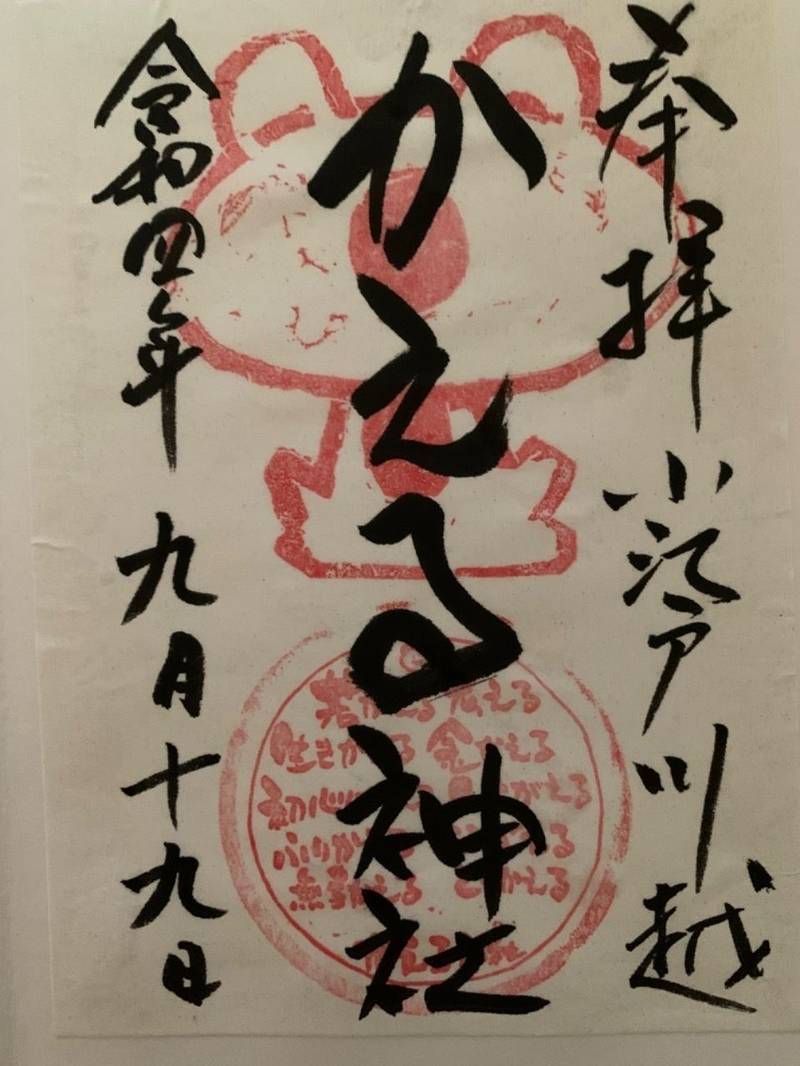 奉拝 小江戸川越
かえる神社
令和四年 九月十九日
若がえる 伝える
生きかえる 金かえる
無事かえる